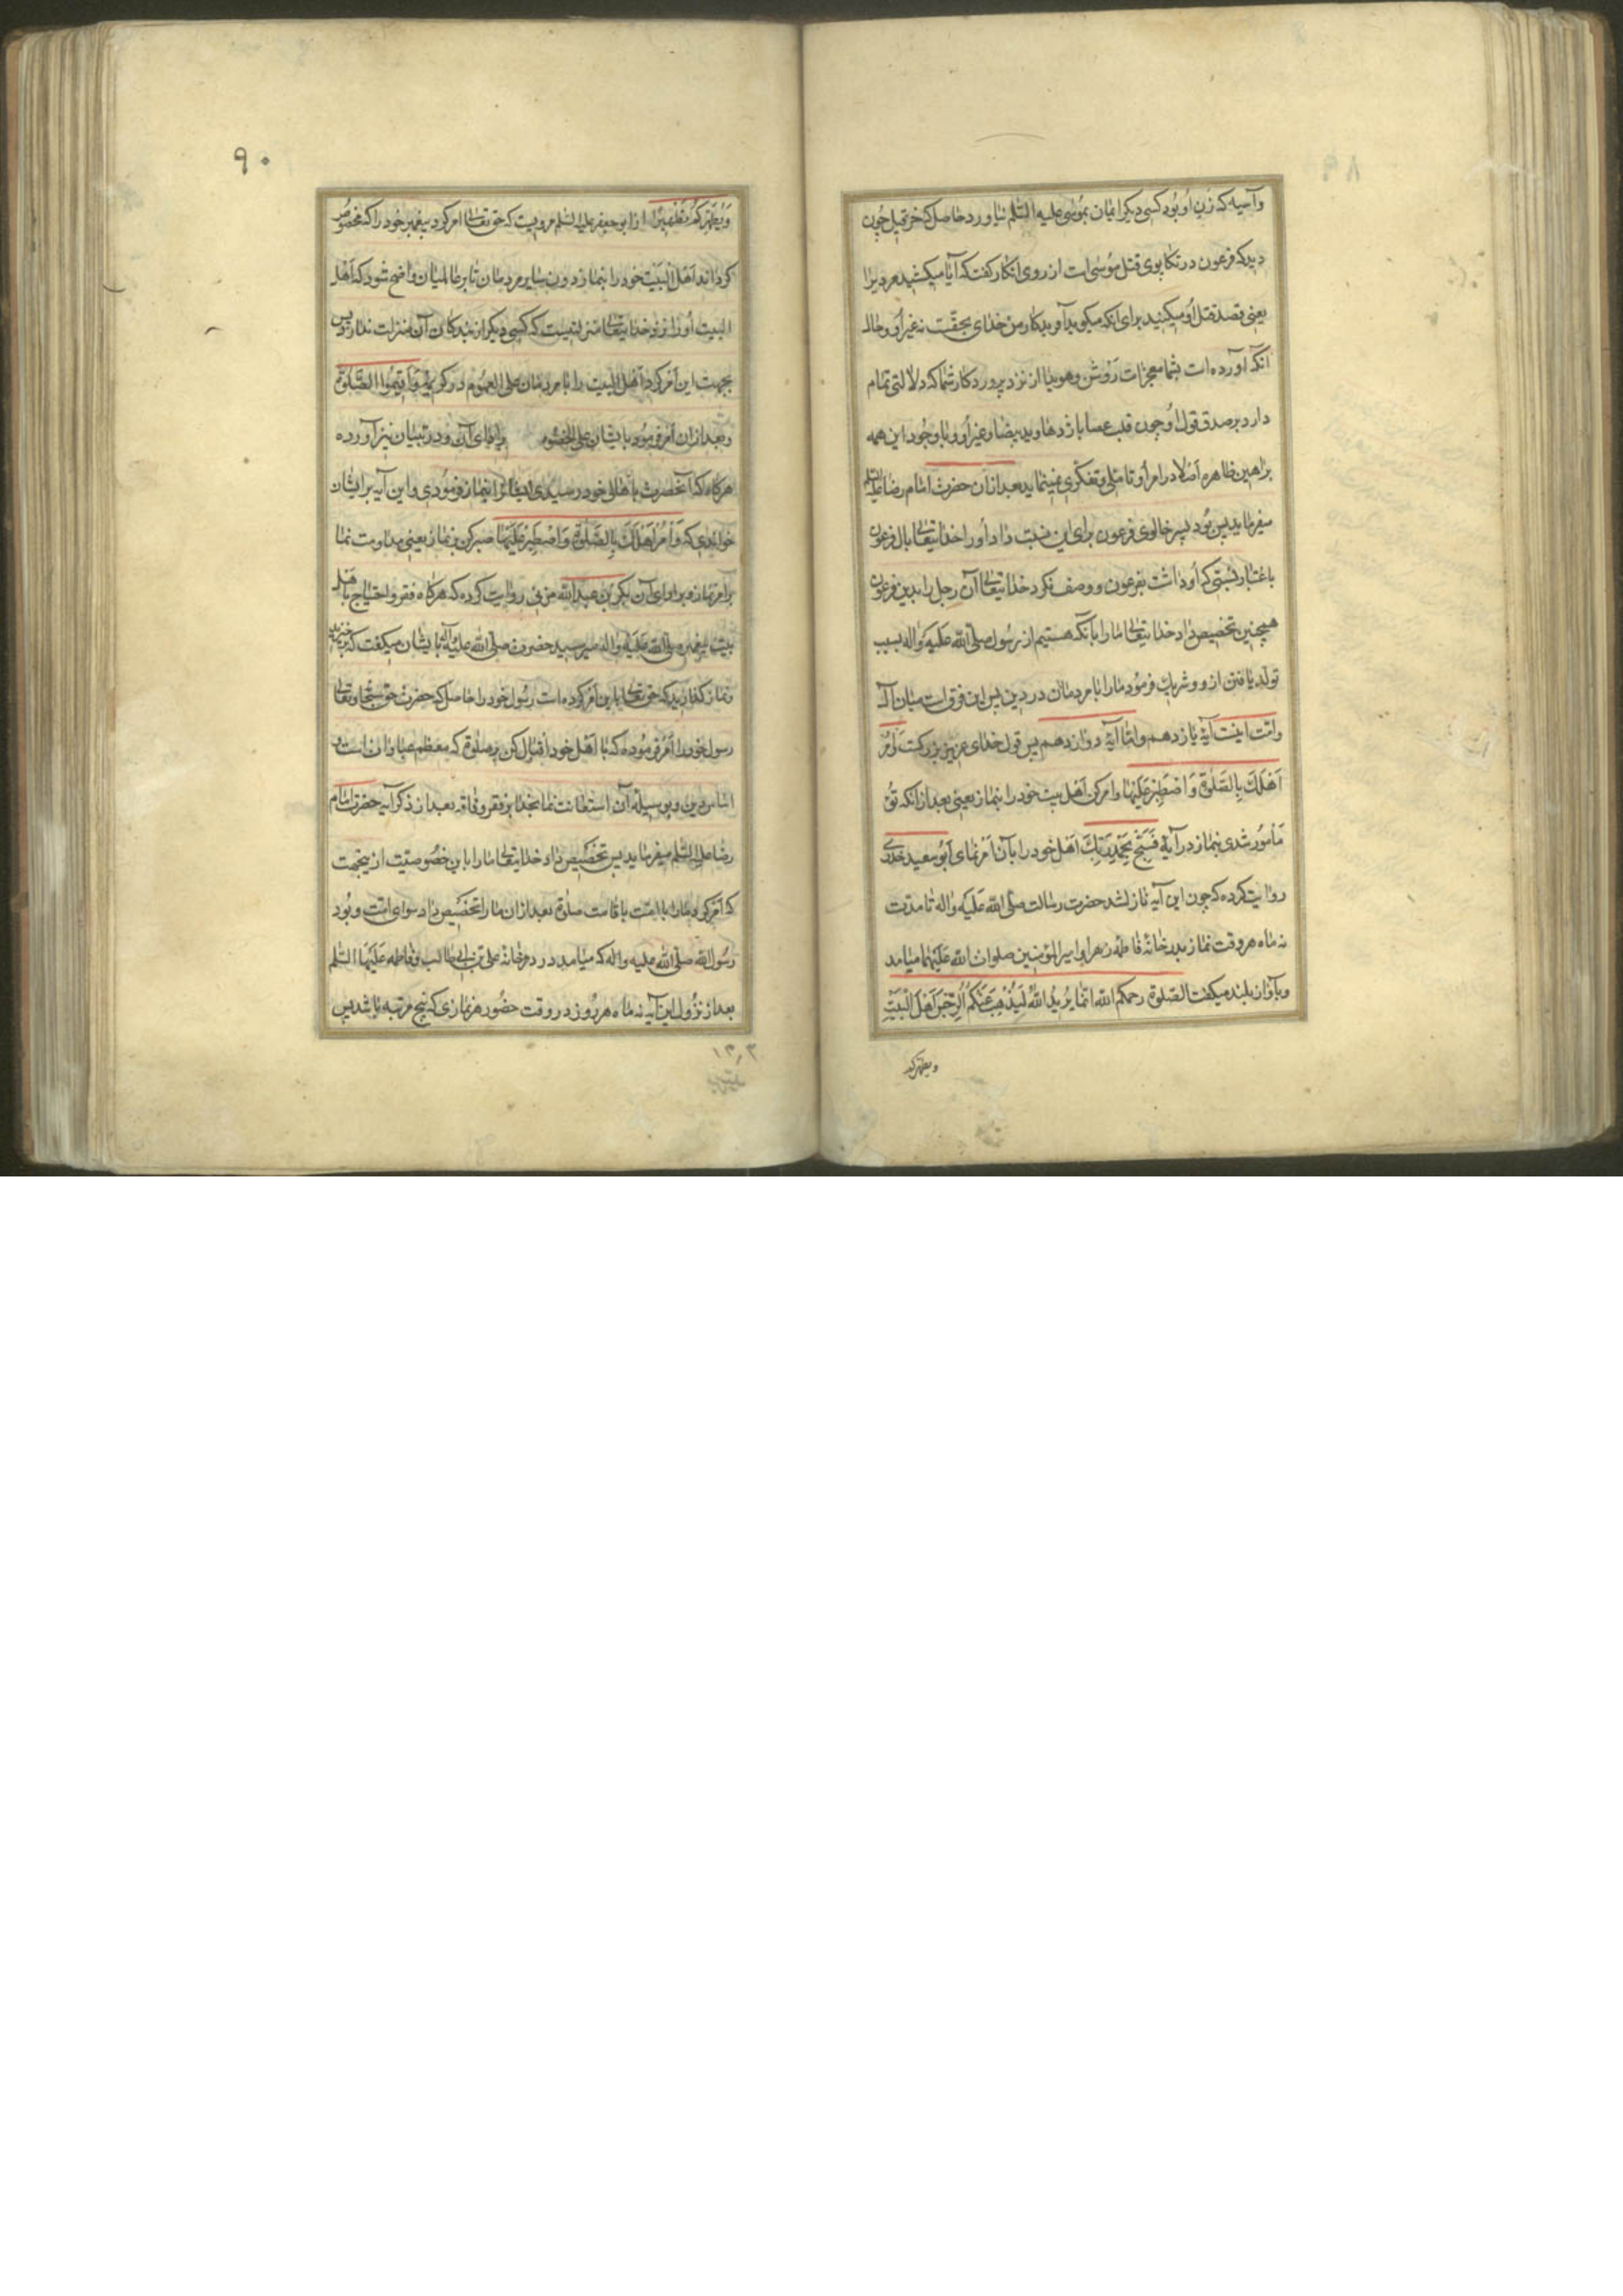 وآسیه که زن او بود کسی دیکر ایمان بموسی علیه السلم نیاورد حاصل که خرقیل چون
دید که فرعون در تکاپوی قتل موسی است از روی انکار کفت که آیا میکشید مردیرا
یعنی قصد قتل او میکنید برای انکه میکوید آفریدکار من خدای بحقست نه غیر او و حال
انکه آورده است بشما معجزات روشن و هویدا از نزد پروردکار شما که دلالتی تمام
دارد بر صدق قول او چون قلب عصا باژدها و ید بیضا و غیر او و با وجود این همه
براهین ظاهره اصلا در امر او تاملی و تفکری نمینماید بعد ازان حضرت امام رضا علیه السلم
میفرماید پس بود پسر خالوی فرعون برای این نسبت داد او را خدایتعالی بال فرعون
باعتبار نسبتی که او داشت بفرعون و وصف نکرد خدایتعالی آن رجل را بدین فرعون
همچنین تخصیص داد خدایتعالی ما را بانکه هستیم از رسول صلی الله علیه واله بسبب
تولد یافتن ازو و شریک فرمود ما را با مردمان در دین پس این فرق است میان آل
وامت اینست آیهٔ یازدهم واما آیهٔ دوازدهم پس قول خدای عزیز بزرکست وَأمُر
اَهلَكَ بِالصَّلوةِ وَاصْطَبِرْ عَلَیْهَا وامر کن اهل بیت خود را بنماز یعنی بعد ازانکه تو
مامور شدی بنماز در آیهٔ فَسَبِّح بِحَمْدِ رَبِّكَ اهل خود را بآن امر نمای ابو سعید خدری
روایت کرده که چون این آیه نازل شد حضرت رسالت صلی الله علیه واله تا مدت
نه ماه هر وقت نماز بدر خانهٔ فاطمه زهرا و امیر المؤمنین صلوات الله علیهما میامد
وبآواز بلند میکفت الصلوة رحمکم الله انما یُرِیدُ اللهُ لِیُذْهِبَ عَنْکُمُ الرِّجْسَ اَهْلَ الْبَیْتِ
ویطهرکم
٩٠
وَیُطَهِّرَکُمْ تَطْهِیرًا از ابو جعفر علیه السلم مرویست که حق تعالی امر کرد پیغمبر خود را که مخصوص
کرداند اهل البیت خود را بنماز دون سایر مردمان تا بر عالمیان واضح شود که اهل
البیت او را نزد خدایتعالی منزلتیست که کسی دیکر از بندکان آن منزلت ندارد پس
بجهت این امر کرد اهل البیت را با مردمان علی العموم در کریمهٔ وَاَقِیمُوا الصَّلوةَ
وبعد ازان امر فرمود بایشان علی الخصوص ودر تبیان نیز آورده
هرکاه که آنحضرت باهل خود رسیدی ایشانرا بنماز فرمودی و این آیه بر ایشان
خواندی که وَأْمُرْ اَهْلَكَ بِالصَّلوةِ وَاصْطَبِرْ عَلَیْهَا صبر کن بر نماز یعنی مداومت نما
بر امر نماز وبر ادای آن بکر بن عبد الله مزنی روایت کرده که هرکاه فقر و احتیاج باهل
بیت پیغمبر صلی الله علیه واله میرسید حضرت صلی الله علیه وآله بایشان میکفت که برخیزید
ونماز کذارید که حق تعالی باین امر کرده است رسول خود را حاصل که حضرت حق سبحانه وتعالی
رسول خود را امر فرموده که با اهل خود اقبال کن بر صلوة که معظم عبادات است و
اساس دین و بوسیلهٔ آن استعانت نما بخدا بر فقر و فاقه بعد از ذکر آیه حضرت امام
رضا علیه السلم میفرماید پس تخصیص داد خدایتعالی ما را باین خصوصیت ازینجهت
که امر کرد ما را با امت باقامت صلوة بعد ازان ما را تخصیص داد سوای امت و بود
رسول الله صلی الله علیه واله که میامد در در خانهٔ علی بن ابی طالب و فاطمه علیهما السلم
بعد از نزول این آیه نه ماه هر روز در وقت حضور هر نمازی که پنج مرتبه باشد پس